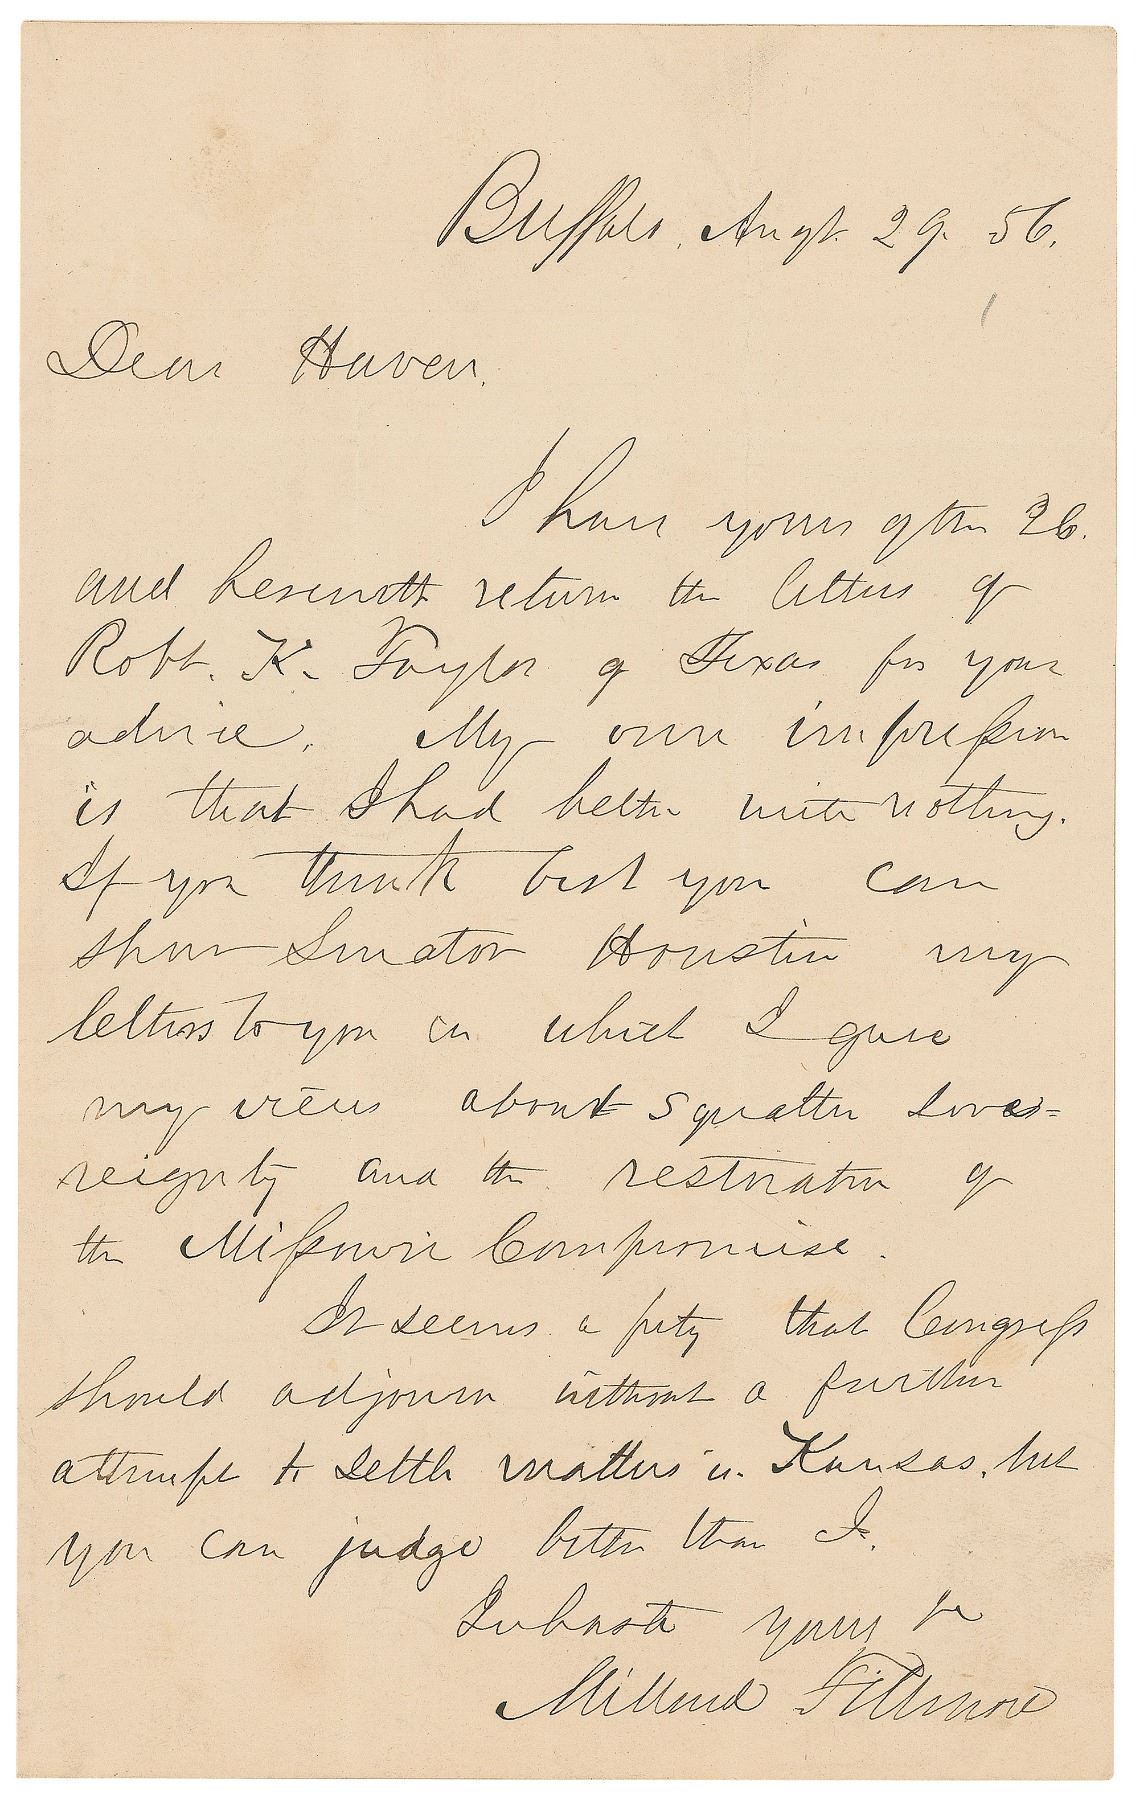 Buffalo, Augt. 29. 56.
Dear Haven,
I have yours of the 26.
and herewith return the letters of
Robt. K. Taylor of Texas for your
advice. My own impression
is that I had better write nothing.
If you think best you can
show Senator Houston my
letters to you in which I gave
my views about Squatter Sove=
reignty and the restoration of
the Missouri Compromise.
It seems a pity that Congress
should adjourn without a further
attempt to settle matters in Kansas, but
you can judge better than I.
In haste yours
Millard Fillmore